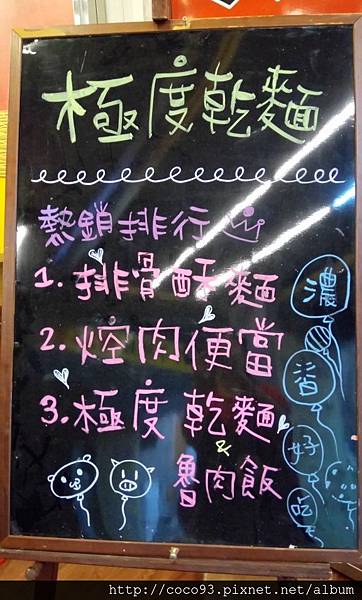 極度乾麵
熱銷排行
1. 排骨酥麵
2. 焢肉便當
3. 極度乾麵
&
魯肉飯
濃
香
好
吃
http://coco93.pixnet.net/album